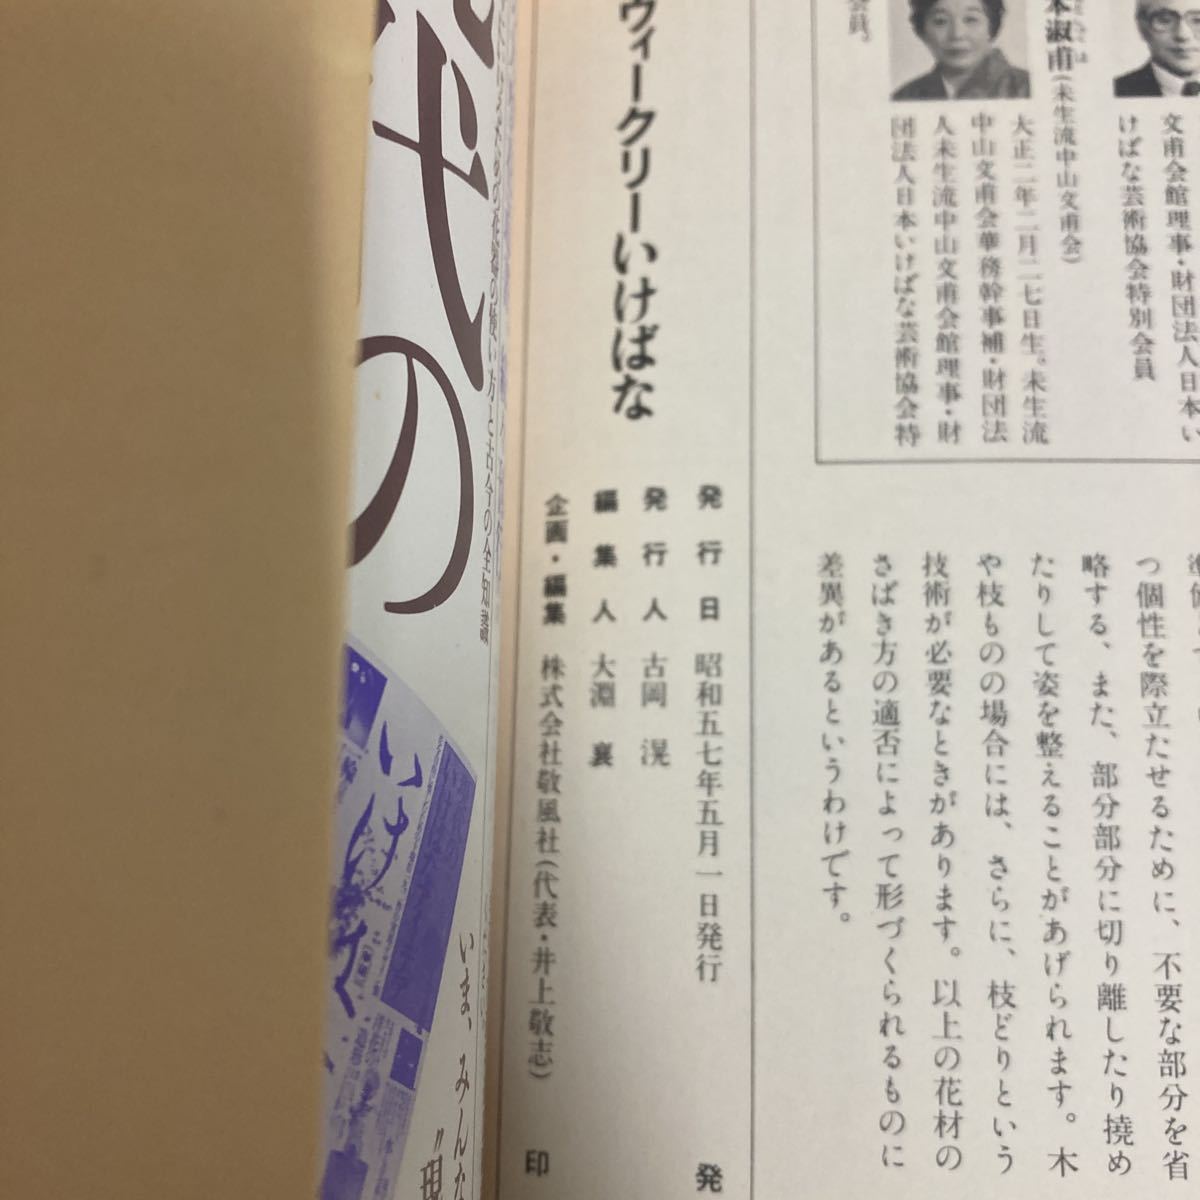 文甫会館理事・財団法人日本い
けばな芸術協会特別会員
本淑甫(未生流中山文甫会)
大正二年二月二七日生。未生流
中山文甫会華務幹事補・財団法
人未生流中山文甫会館理事・財
団法人日本いけばな芸術協会特
会員。
つ個性を際立たせるために、不要な部分を省
略する、また、部分部分に切り離したり撓め
たりして姿を整えることがあげられます。木
や枝ものの場合には、さらに、枝どりという
技術が必要なときがあります。以上の花材の
さばき方の適否によって形づくられるものに
差異があるというわけです。
ウィークリーいけばな
発行日 昭和五七年五月一日発行
発行人 古岡 滉
編集人 大淵 襄
企画・編集 株式会社敬風社(代表・井上敬志)
発
印
の使い方と古今の全知識
代の
いけ
いま、みんな
“現